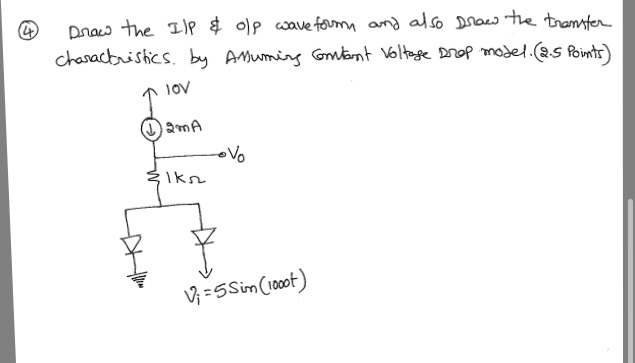 ④ Draw the I/P & O/P waveforms and also Draw the transfer
charactristics. by Assuming Constant Voltage Drop model. (2.5 Points)
10V
2mA
Vo
1kΩ
Vi = 5 Sin(1000t)